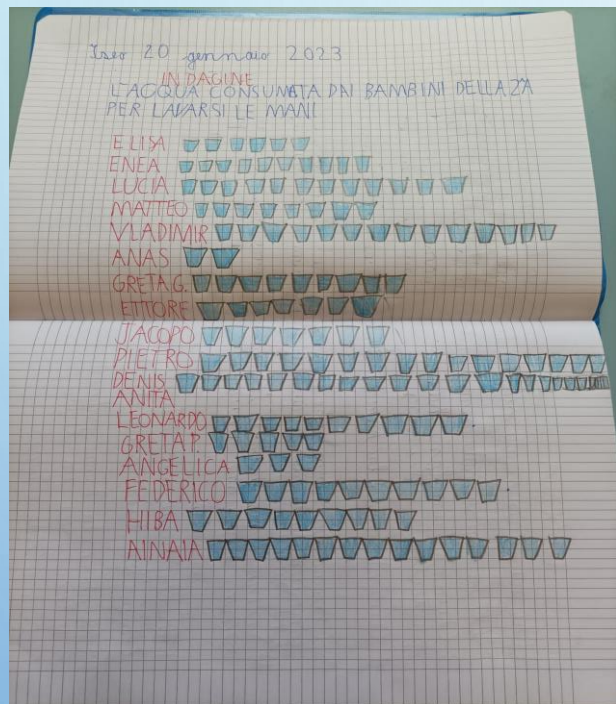 Iseo 20 gennaio 2023
INDAGINE
L'ACQUA CONSUMATA DAI BAMBINI DELLA 2ªA
PER LAVARSI LE MANI
ELISA
ENEA
LUCIA
MATTEO
VLADIMIR
ANAS
GRETA G.
ETTORE
JACOPO
PIETRO
DENIS
ANITA
LEONARDO
GRETA P.
ANGELICA
FEDERICO
HIBA
AINAIA